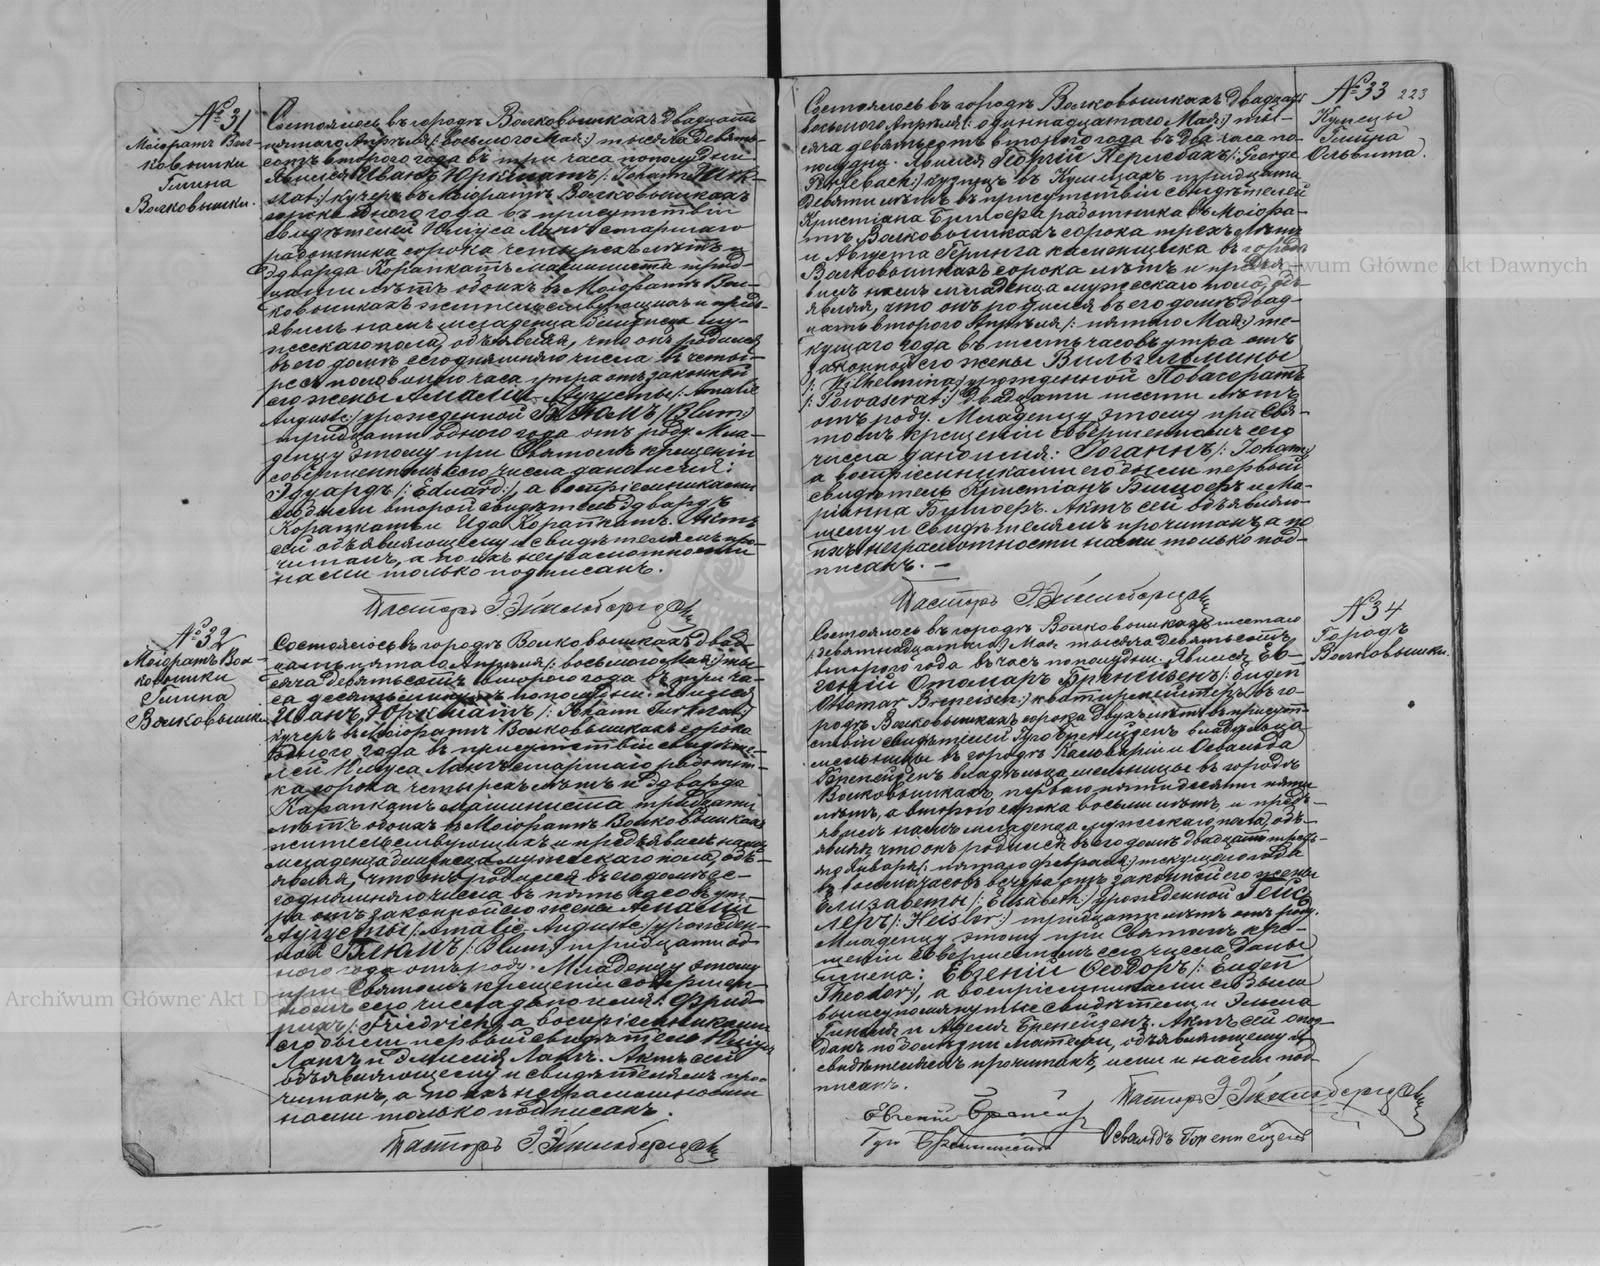 № 31
Маіоратъ Вол-
ковышки
Гмина
Волковышки.
Состоялось въ городѣ Волковышкахъ двадцать
пятаго Апрѣля /: восьмого Мая :/ тысяча девять-
сотъ второго года въ три часа пополудни
Явился Иванъ Юркшатъ /: Johann Jurk-
schat :/ кучеръ въ Маіоратѣ Волковышкахъ
сорока одного года въ присутствіи
свидѣтелей Юлиуса Лангъ старшаго
работника сорока четырехъ лѣтъ и
Эдварда Карапкатъ машиниста трид-
цати лѣтъ обоихъ въ Маіоратѣ Вол-
ковышкахъ жительствующихъ и предъ-
явилъ намъ младенца близнеца му-
жескаго пола, объявляя, что онъ родился
въ его домѣ сегодняшняго числа въ четы-
ре съ половиною часа утра отъ законной
его жены Амаліи Августы /: Amalie
Auguste :/ урожденной Блюмъ /: Blum :/
тридцати одного года отъ роду. Мла-
денцу этому при Святомъ крещеніи
совершенномъ сего числа дано имя:
Эдуардъ /: Eduard :/ а воспріемниками
его были второй свидѣтель Эдвардъ
Карапкатъ и Ида Карапкатъ. Актъ
сей объявляющему и свидѣтелямъ про-
читанъ, а по ихъ неграмотности
нами только подписанъ.
Пасторъ
№ 32
Маіоратъ Вол-
ковышки
Гмина
Волковышки
Состоялось въ городѣ Волковышкахъ двад-
цать пятаго Апрѣля /: восьмого Мая :/ ты-
сяча девятьсотъ второго года въ три ча-
са десять минутъ пополудни. Явился
Иванъ Юркшатъ /: Johann Jurkschat :/
кучеръ въ Маіоратѣ Волковышкахъ сорока
одного года въ присутствіи свидѣте-
лей Юлиуса Лангъ старшаго работни-
ка сорока четырехъ лѣтъ и Эдварда
Карапкатъ машиниста тридцати
лѣтъ обоихъ въ Маіоратѣ Волковышкахъ
жительствующихъ и предъявилъ намъ
младенца близнеца мужескаго пола, объ-
являя, что онъ родился въ его домѣ се-
годняшняго числа въ пять часовъ ут-
ра отъ законной его жены Амаліи
Августы /: Amalie Auguste :/ урожден-
ной Блюмъ /: Blum :/ тридцати од-
ного года отъ роду. Младенцу этому
при Святомъ крещеніи совершен-
номъ сего числа дано имя: Фрид-
рихъ /: Friedrich :/, а воспріемниками
его были первый свидѣтель Юлиусъ
Лангъ и Эмилія Лангъ. Актъ сей
объявляющему и свидѣтелямъ про-
читанъ, а по ихъ неграмотности
нами только подписанъ.
Пасторъ
№ 33 223
Купецы
Гмина
Ольвита.
Состоялось въ городѣ Волковышкахъ двадцать
восьмого Апрѣля /: одиннадцатаго Мая :/ ты-
сяча девятьсотъ второго года въ два часа по-
полудни. Явился Георгій Перлебахъ /: George
Perlebach :/ кузнецъ въ Купецахъ тридцати
девяти лѣтъ въ присутствіи свидѣтелей
Кристіана работника въ Маіора-
тѣ Волковышкахъ сорока трехъ лѣтъ
и Августа Гринга каменщика въ городѣ
Волковышкахъ сорока лѣтъ и предъя-
вилъ намъ младенца мужескаго пола, объ-
являя, что онъ родился въ его домѣ двад-
цать второго Апрѣля /: пятаго Мая :/ те-
кущаго года въ шесть часовъ утра отъ
законной его жены Вильгельмины
/: Wilhelmina :/ урожденной Повасератъ
/: Powaserat :/ двадцати шести лѣтъ
отъ роду. Младенцу этому при Свя-
томъ крещеніи совершенномъ сего
числа дано имя: Іоганнъ /: Johann :/
а воспріемниками его были первый
свидѣтель Кристіанъ и Ма-
ріанна Актъ сей объявляю-
щему и свидѣтелямъ прочитанъ, а по
ихъ неграмотности нами только под-
писанъ. —
Пасторъ
№ 34
Городъ
Волковышки.
Состоялось въ городѣ Волковышкахъ шестаго
/: девятнадцатаго :/ Мая тысяча девятьсотъ
второго года въ часъ пополудни. Явился Ев-
геній Отомаръ Бренейзенъ /: Eugen
Ottomar Breneisen :/ квартирмейстеръ въ го-
родѣ Волковышкахъ сорока двухъ лѣтъ въ присут-
ствіи свидѣтелей Гуго Бренейзенъ владѣльца
мельницы въ городѣ Кальваріи и Освальда
Бренейзенъ владѣльца мельницы въ городѣ
Волковышкахъ, перваго пятидесяти пяти
лѣтъ, а второго сорока восьми лѣтъ, и предъ-
явилъ намъ младенца мужескаго пола, объ-
являя что онъ родился въ его домѣ двадцать третья-
го Января /: пятаго Февраля :/ текущаго года
въ восемь часовъ вечера отъ законной его жены
Елизаветы /: Elisabeth :/ урожденной Гейс-
леръ /: Heisler :/ тридцати лѣтъ отъ роду.
Младенцу этому при Святомъ кре-
щеніи совершенномъ сего числа даны
имена: Евгеній Ѳеодоръ /: Eugen
Theodor :/, а воспріемниками его были
вышеупомянутые свидѣтели и Эмма
и Аделя Бренейзенъ. Актъ сей опоз-
данъ по болѣзни матери, объявляющему и
свидѣтелямъ прочитанъ, ими и нами под-
писанъ.
Пасторъ
Евгеній
Гуго
Освальдъ Бреннейзенъ
Archiwum Główne Akt Dawnych
Archiwum Główne Akt Dawnych